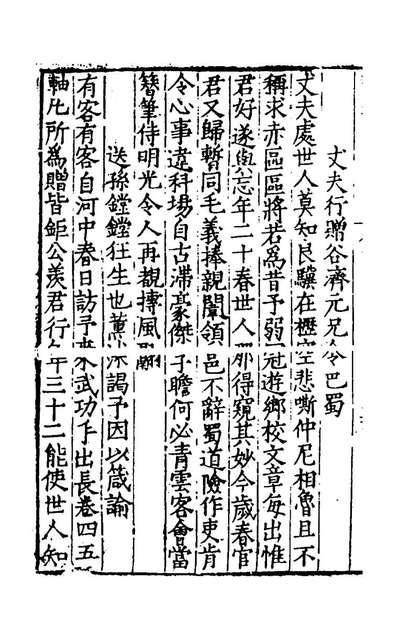 丈夫行贈谷濟元兄令巴蜀
丈夫處世人莫知良驥在櫪空悲嘶仲尼相魯且不
稱求亦區區將若為昔予弱冠遊鄉校文章每出惟
君好遂與忘年二十春世人那得窺其妙今歲春官
君又歸暫同毛義捧親闈領邑不辭蜀道險作吏肯
令心事違科場自古滯豪傑子瞻何必青雲客會當
簪筆侍明光令人再覩摶風翮
送孫鏜鏜狂生也薰沐謁予因以箴論
有客有客自河中春日訪予來武功乍出長卷四五
軸凡所為贈皆鉅公羨君行年三十二能使世人知